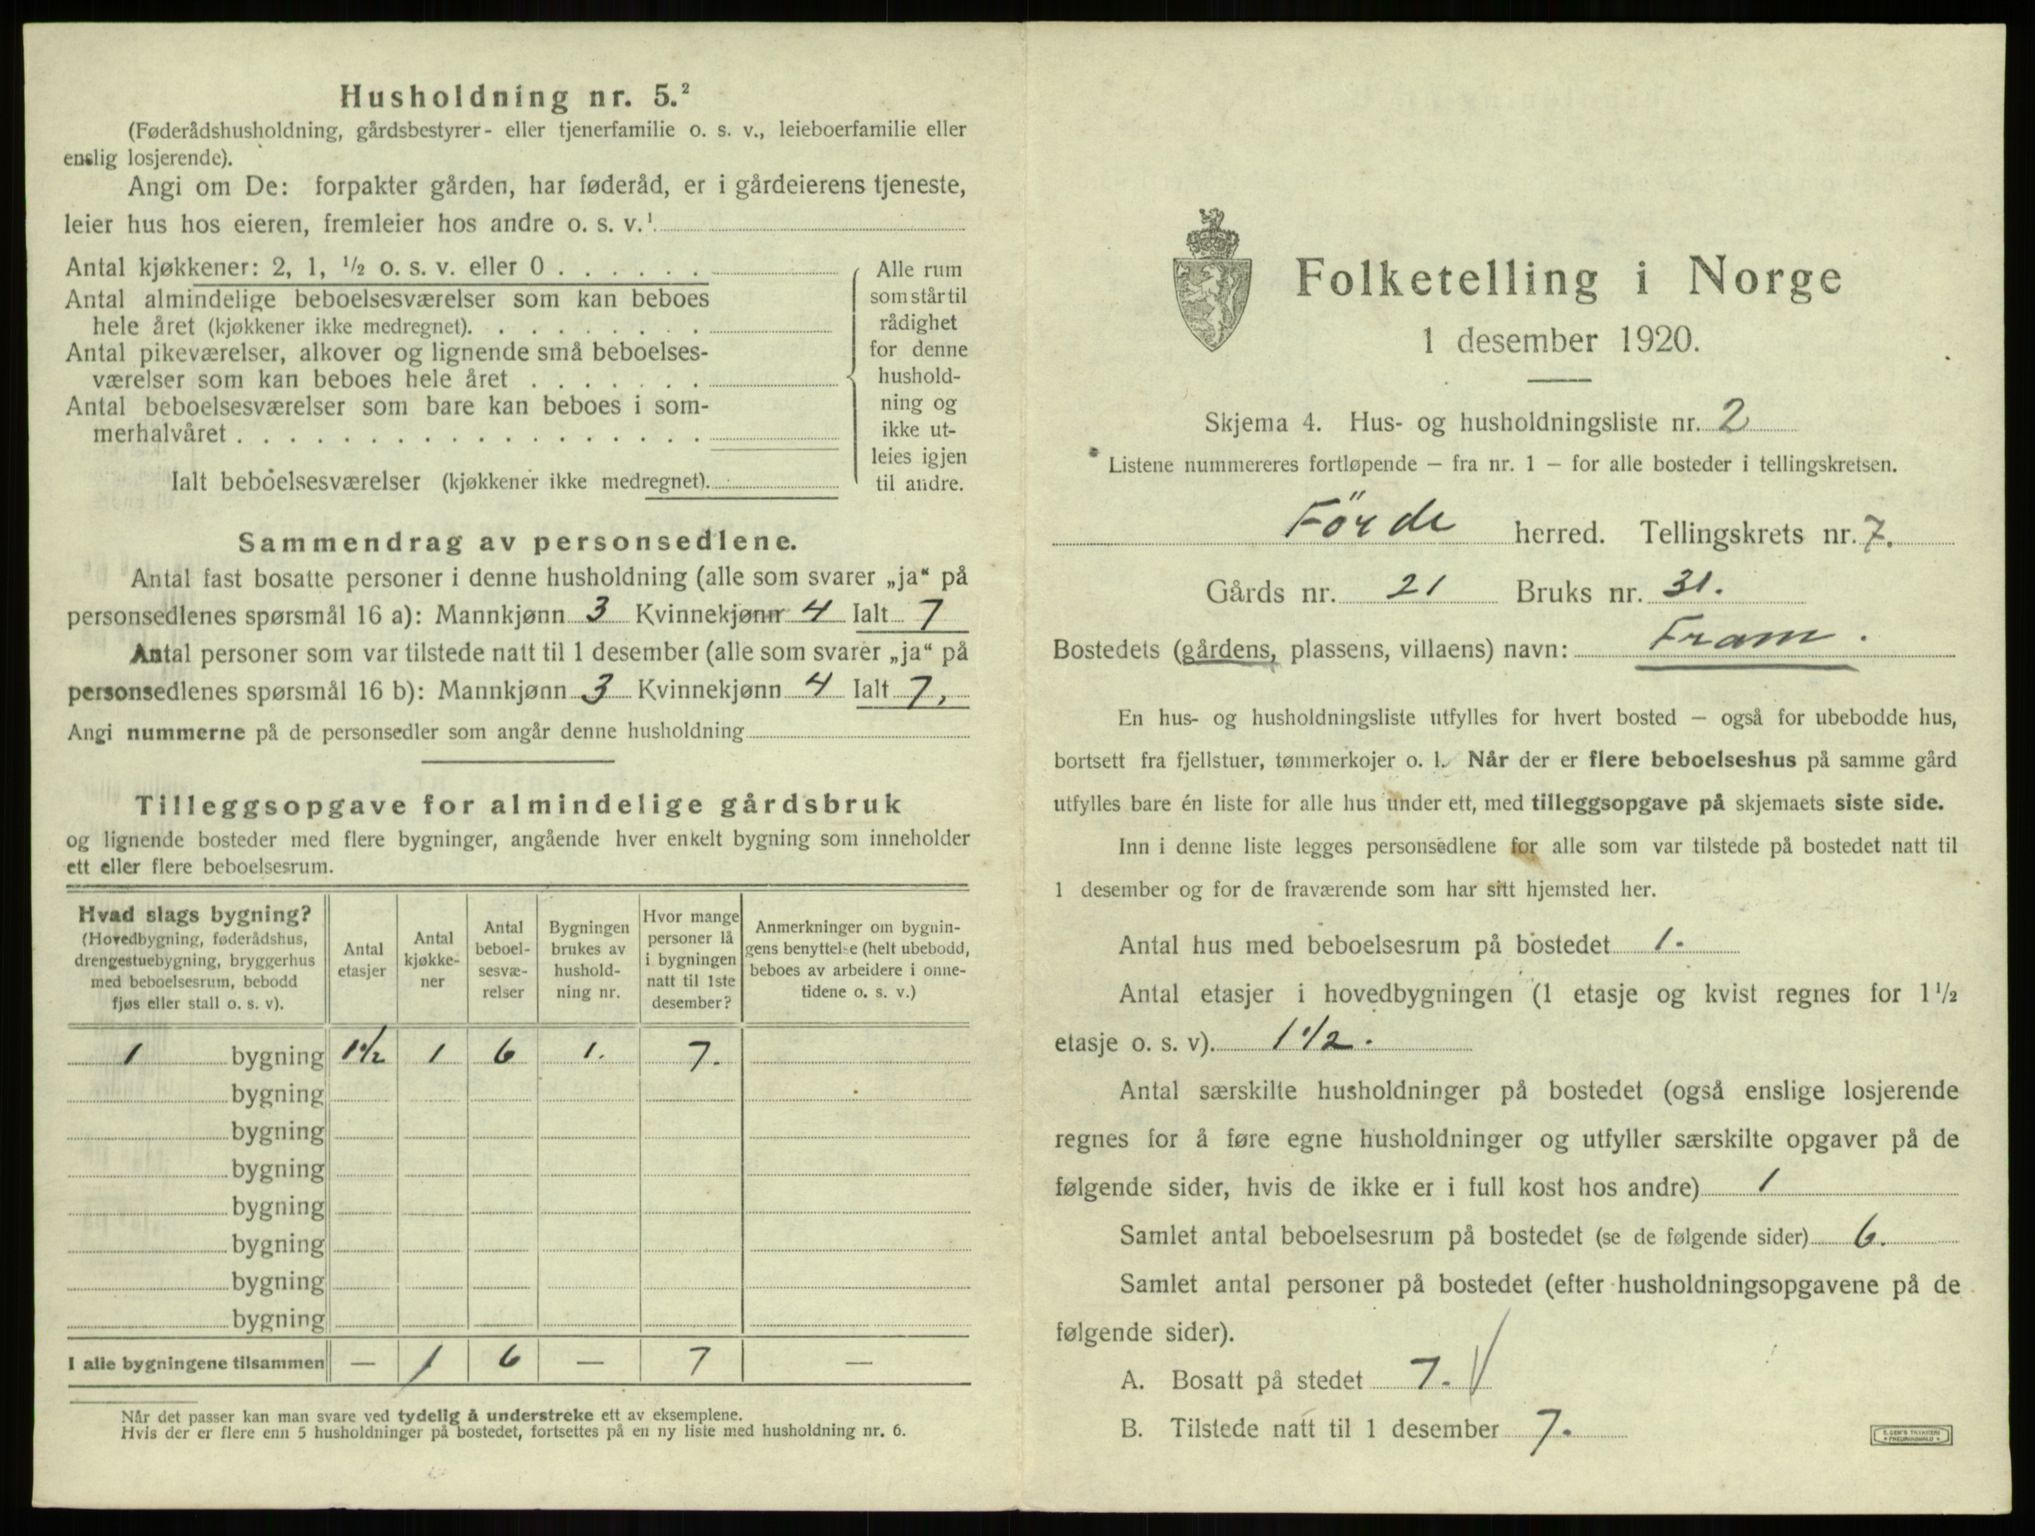 Husholdning nr. 5.²
(Føderådshusholdning, gårdsbestyrer- eller tjenerfamilie o. s. v., leieboerfamilie eller
enslig losjerende).
Angi om De: forpakter gården, har føderåd, er i gårdeierens tjeneste,
leier hus hos eieren, fremleier hos andre o. s. v.¹
Antal kjøkkener: 2, 1, ½ o. s. v. eller 0 . . . . . .
Antal almindelige beboelsesværelser som kan beboes
hele året (kjøkkener ikke medregnet). . . . . . . . .
Antal pikeværelser, alkover og lignende små beboelses-
værelser som kan beboes hele året . . . . . . .
Antal beboelsesværelser som bare kan beboes i som-
merhalvåret . . . . . . . . . . . . . . . . . .
Ialt beboelsesværelser (kjøkkener ikke medregnet).
Alle rum
som står til
rådighet
for denne
hushold-
ning og
ikke ut-
leies igjen
til andre.
Sammendrag av personsedlene.
Antal fast bosatte personer i denne husholdning (alle som svarer „ja“ på
personsedlenes spørsmål 16 a): Mannkjønn 3 Kvinnekjønn 4 Ialt 7
Antal personer som var tilstede natt til 1 desember (alle som svarer „ja“ på
personsedlenes spørsmål 16 b): Mannkjønn 3 Kvinnekjønn 4 Ialt 7,
Angi nummerne på de personsedler som angår denne husholdning
Tilleggsopgave for almindelige gårdsbruk
og lignende bosteder med flere bygninger, angående hver enkelt bygning som inneholder
ett eller flere beboelsesrum.
Hvad slags bygning?
(Hovedbygning, føderådshus,
drengestuebygning, bryggerhus
med beboelsesrum, bebodd
fjøs eller stall o. s. v).
Antal
etasjer
Antal
kjøkke-
ner
Antal
beboel-
sesvæ-
relser
Bygningen
brukes av
hushold-
ning nr.
Hvor mange
personer lå
i bygningen
natt til 1ste
desember?
Anmerkninger om bygnin-
gens benyttelse (helt ubebodd,
beboes av arbeidere i onne-
tidene o. s. v.)
1 bygning 1½ 1 6 1. 7.
bygning
bygning
bygning
bygning
bygning
bygning
bygning
I alle bygningene tilsammen — 1 6 — 7 —
Når det passer kan man svare ved tydelig å understreke ett av eksemplene.
Hvis der er flere enn 5 husholdninger på bostedet, fortsettes på en ny liste med husholdning nr. 6.
Folketelling i Norge
1 desember 1920.
Skjema 4. Hus- og husholdningsliste nr. 2
Listene nummereres fortløpende – fra nr. 1 – for alle bosteder i tellingskretsen.
Förde herred. Tellingskrets nr. 7.
Gårds nr. 21 Bruks nr. 31.
Bostedets (gårdens, plassens, villaens) navn: Fram.
En hus- og husholdningsliste utfylles for hvert bosted – også for ubebodde hus,
bortsett fra fjellstuer, tømmerkojer o. l. Når der er flere beboelseshus på samme gård
utfylles bare én liste for alle hus under ett, med tilleggsopgave på skjemaets siste side.
Inn i denne liste legges personsedlene for alle som var tilstede på bostedet natt til
1 desember og for de fraværende som har sitt hjemsted her.
Antal hus med beboelsesrum på bostedet 1.
Antal etasjer i hovedbygningen (1 etasje og kvist regnes for 1½
etasje o. s. v). 1½.
Antal særskilte husholdninger på bostedet (også enslige losjerende
regnes for å føre egne husholdninger og utfyller særskilte opgaver på de
følgende sider, hvis de ikke er i full kost hos andre) 1
Samlet antal beboelsesrum på bostedet (se de følgende sider) 6.
Samlet antal personer på bostedet (efter husholdningsopgavene på de
følgende sider).
A. Bosatt på stedet 7.
B. Tilstede natt til 1 desember 7.